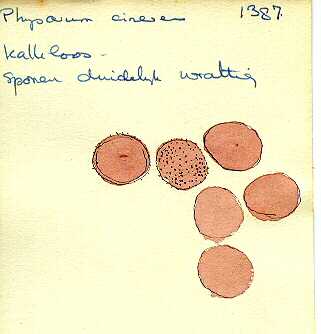 Physarum cinereum 1387.
Kalkloos -
Sporen duidelijk wrattig